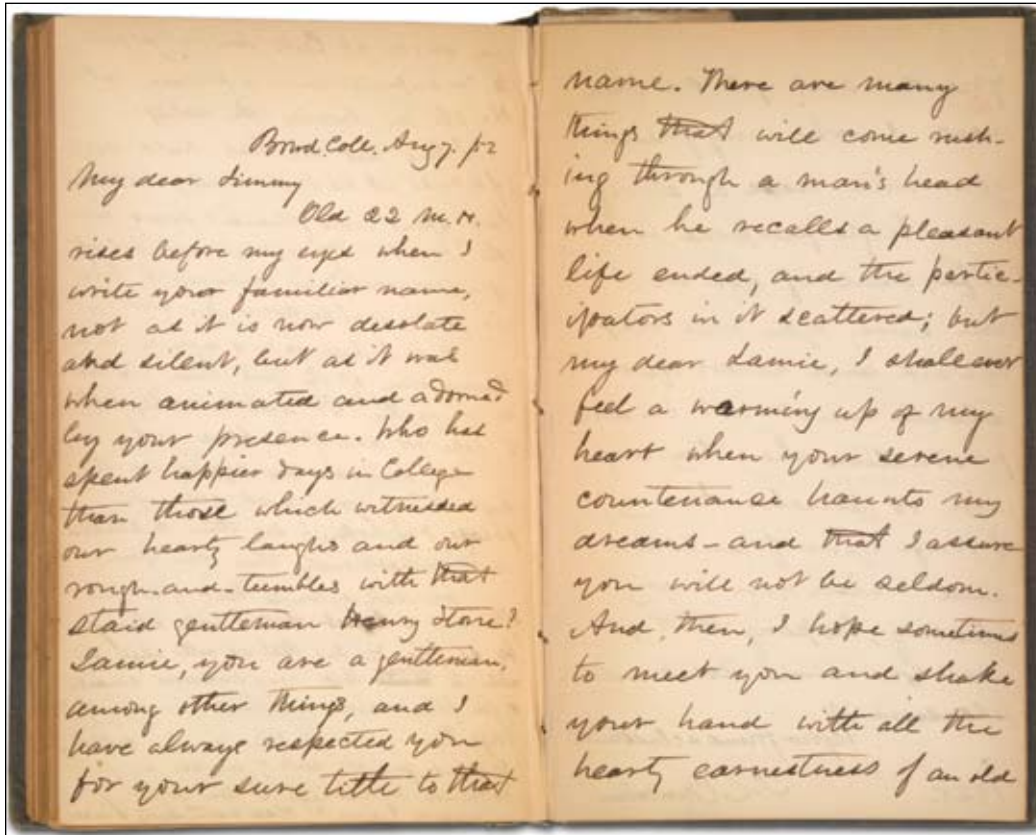 Bowd. Coll. Aug 7. /52
My dear Jimmy
Old 22 M. H.
rises before my eyes when I
write your familiar name,
not as it is now desolate
and silent, but as it was
when animated and adorned
by your presence. Who has
spent happier days in College
than those which witnessed
our hearty laughs and our
rough-and-tumbles with that
staid gentleman Henry Stone?
Jamie, you are a gentleman,
among other things, and I
have always respected you
for your sure title to that
name. There are many
things that will come rush-
ing through a man's head
when he recalls a pleasant
life ended, and the partic-
ipators in it scattered; but
my dear Jamie, I shall ever
feel a warming up of my
heart when your serene
countenance haunts my
dreams - and that I assure
you will not be seldom.
And, then, I hope sometimes
to meet you and shake
your hand with all the
hearty earnestness of an old